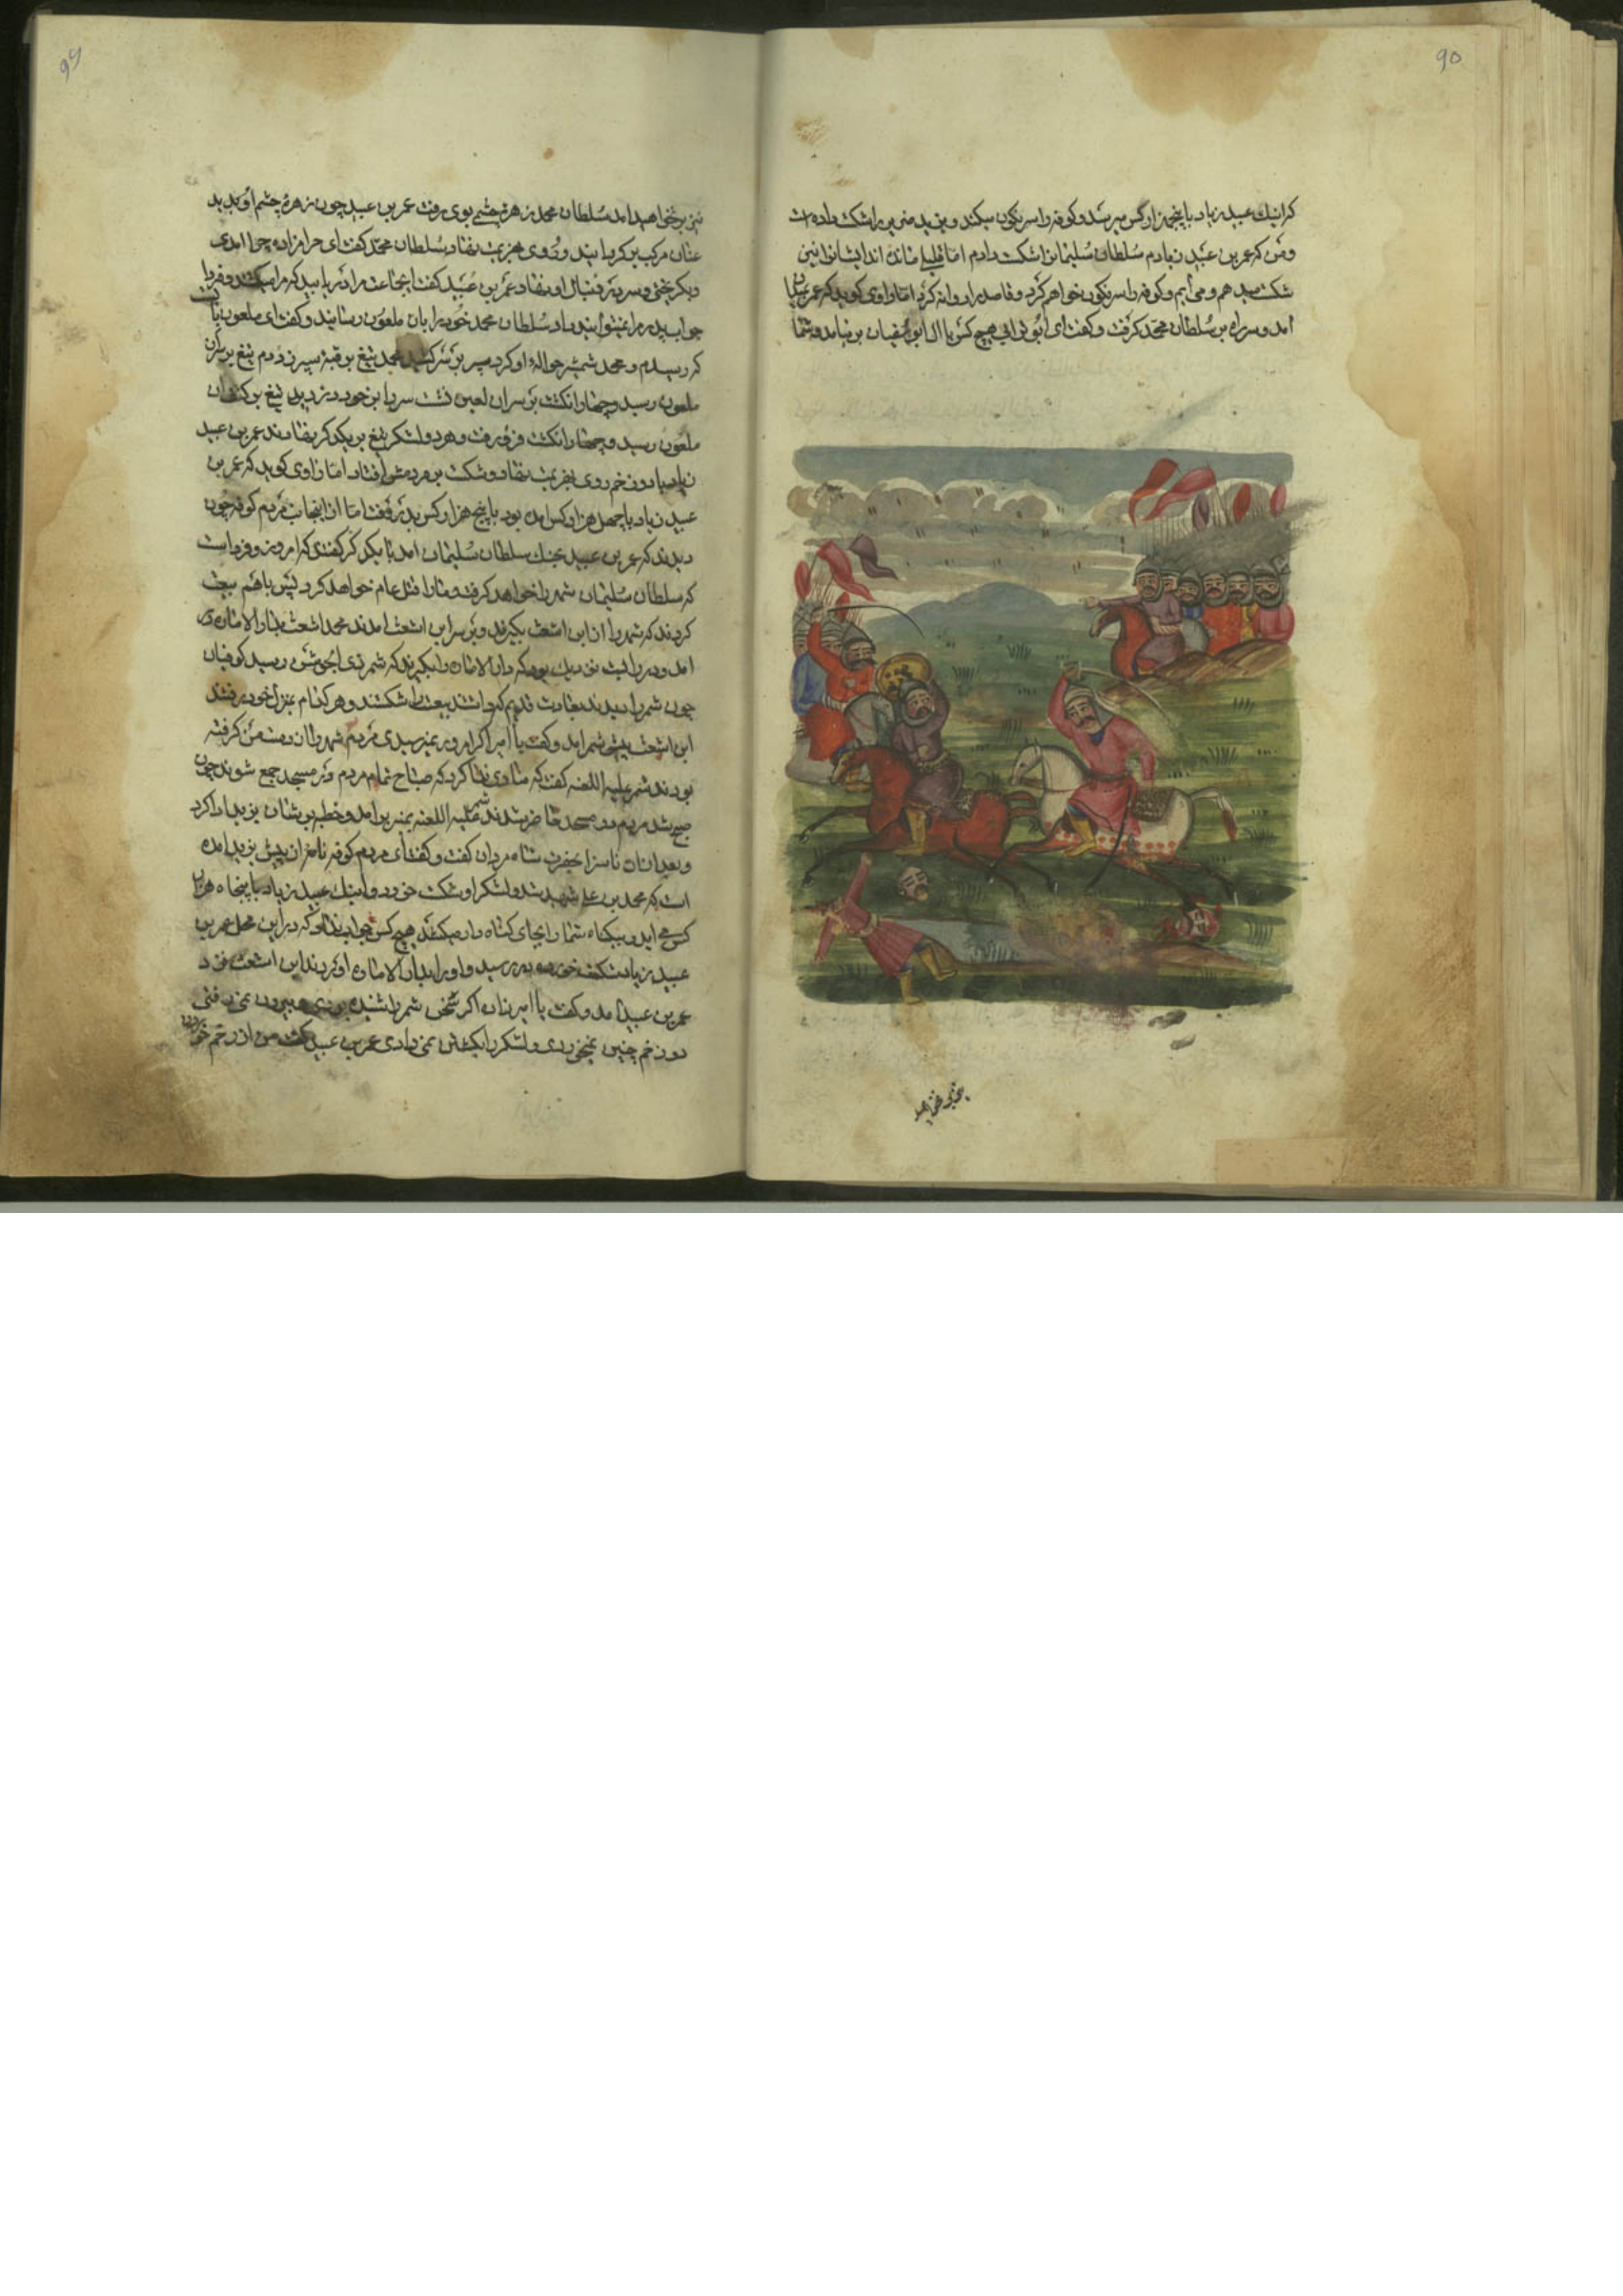 ۹۵
که اینک عبید زیاد با پنجهزار کس میرسد و کوفه را سرنگون میکند و یزید منیر را شکست داده است
و من که عمر بن عبید زیادم سلطان سلیمان را شکست دادم اما قلیلی مانده اند ایشانرا نیز
شکست میدهم و می آیم و کوفه را سرنگون خواهم کرد و قاصد را روانه کرد اما راوی کوید که عمر
امد و سر راه بر سلطان محمد کرفت و کفت ای ابوترابی هیچ کس با ال ابوسفیان بر نیامد و شما
۹۶
نیز بر نخواهید امد سلطان محمد زهره چشمی بوی رفت عمر بن عبید چون زهره چشم او بدید
عنان مرکب بر کردانید و روی بهزیمت نهاد سلطان محمد کفت ای حرامزاده چرا امدی
دیکر یختی و سر به دنبال او نهاد عمر بن عبید کفت ای جماعت مرا دریابید که مرا میکشد و فردا
جواب پدرم را نمیتوانید داد سلطان محمد خود را بان ملعون رسانید و کفت ای ملعون
که رسیدم و محمد شمشیر حواله او کرد سپر بر سر کشید محمد تیغ بر قبه سپر زد دم تیغ بر سر ان
ملعون رسید و چهار انکشت بر سر ان لعین نشست سر با بر خود دزدید تیغ بر کتف ان
ملعون رسید و چهار انکشت فرو رفت و هر دو لشکر تیغ بر یکدیکر نهادند عمر بن عبید
زیاد با دو زخم روی بهزیمت نهاد و شکست بر مردمش افتاد اما راوی کوید که عمر بن
عبید زیاد با چهل هزار کس امده بود با پنج هزار کس بدر رفت اما از اینجانب مردم کوفه چون
دیدند که عمر بن عبید بجنک سلطان سلیمان امد با یکدیکر کفتند که امروز و فرداست
که سلطان سلیمان شهر را خواهد کرفت و مارا قتل عام خواهد کرد پس با هم بیعت
کردند که شهر را از ابن اشعث بکیرند و بر سر ابن اشعث امدند محمد اشعث بدار الاماره
امد و در را بست نزدیک بود که دار الاماره را بکیرند که شمر ذی الجوشن رسید کوفیان
چون شمر را دیدند بعادت قدیم که داشتند بیعت را شکستند و هر کدام بمنزل خود رفتند
ابن اشعث پیش شمر امد و کفت یا امیر اکر امروز نمیرسیدی مردم شهر را از دست من کرفته
بودند شمر علیه اللعنه کفت که منادی ندا کرد که صباح تمام مردم در مسجد جمع شوند چون
صبح شد مردم در مسجد حاضر شدند شمر علیه اللعنه بمنبر بر امد و خطبه بر شان یزید ادا کرد
و بعد ازان ناسزا بحضرت شاه مردان کفت و کفت ای مردم کوفه نامه از پیش یزید امده
است که محمد بن علی شهید شد و لشکر او شکست خورد و اینک عبید زیاد با پنجاه هزار
کس می اید و بیکناه شما را بجای کناه دار میکشد هیچ کس جواب نداد که در این محل عمر بن
عبید زیاد شکست خورده بدر رسید و او را بدار الاماره اوردند ابن اشعث نزد
عمر بن عبید امد و کفت یا امیر زاده اکر سخن شمر را شنیده بودی و بیرون نمی رفتی
دو زخم چنین نمیخوردی و لشکر را بکشتن نمی دادی عمر بن عبید کفت من از زخم خوردن
نیز بر نخواهید